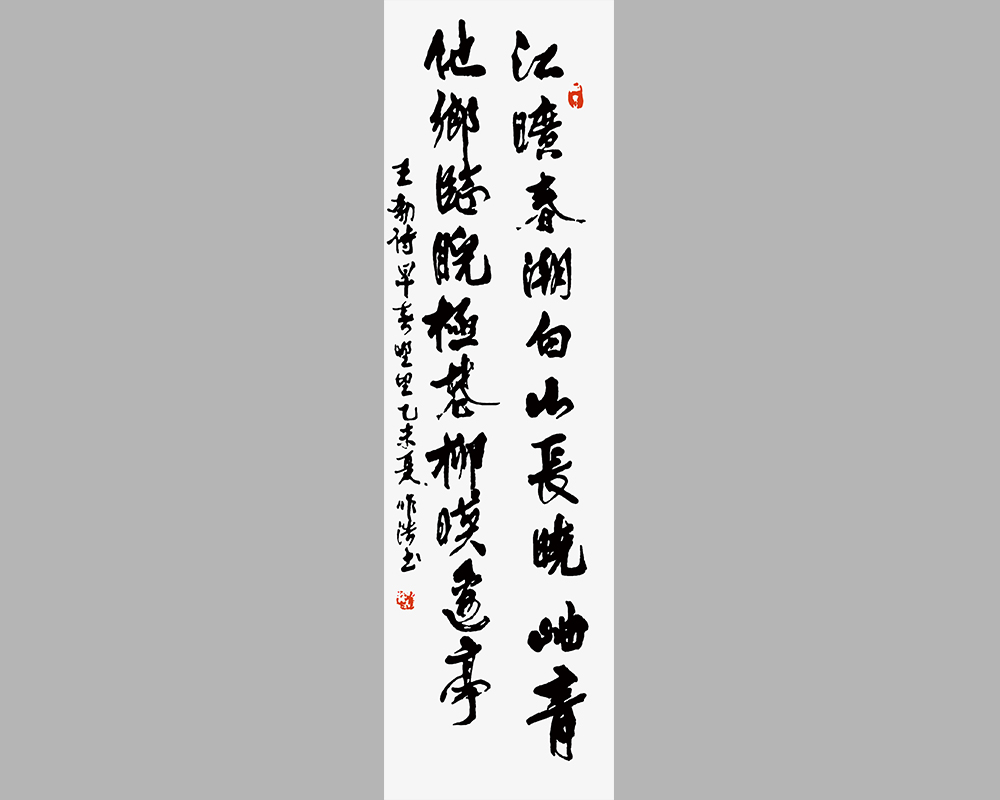 江曠春潮白山長曉岫青
他鄉臨睨極花柳暎邊亭
王勃詩早春野望乙未夏作浩书